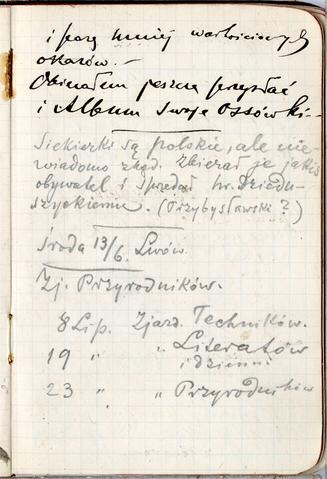 i parę mniej wartościowych
okazów. –
Obiecałem jeszcze przysłać
i Album swoje Ossówki –
Siekierki są polskie, ale nie-
wiadomo skąd. Zbierał je jakiś
obywatel i sprzedał hr. Dziedu-
szyckiemu. (Przybysławski?)
Środa 13/6. Lwów.
Zj. Przyrodników.
8 Lip. Zjazd Techników.
19 " " Literatów
i dzienni
23 " " Przyrodników